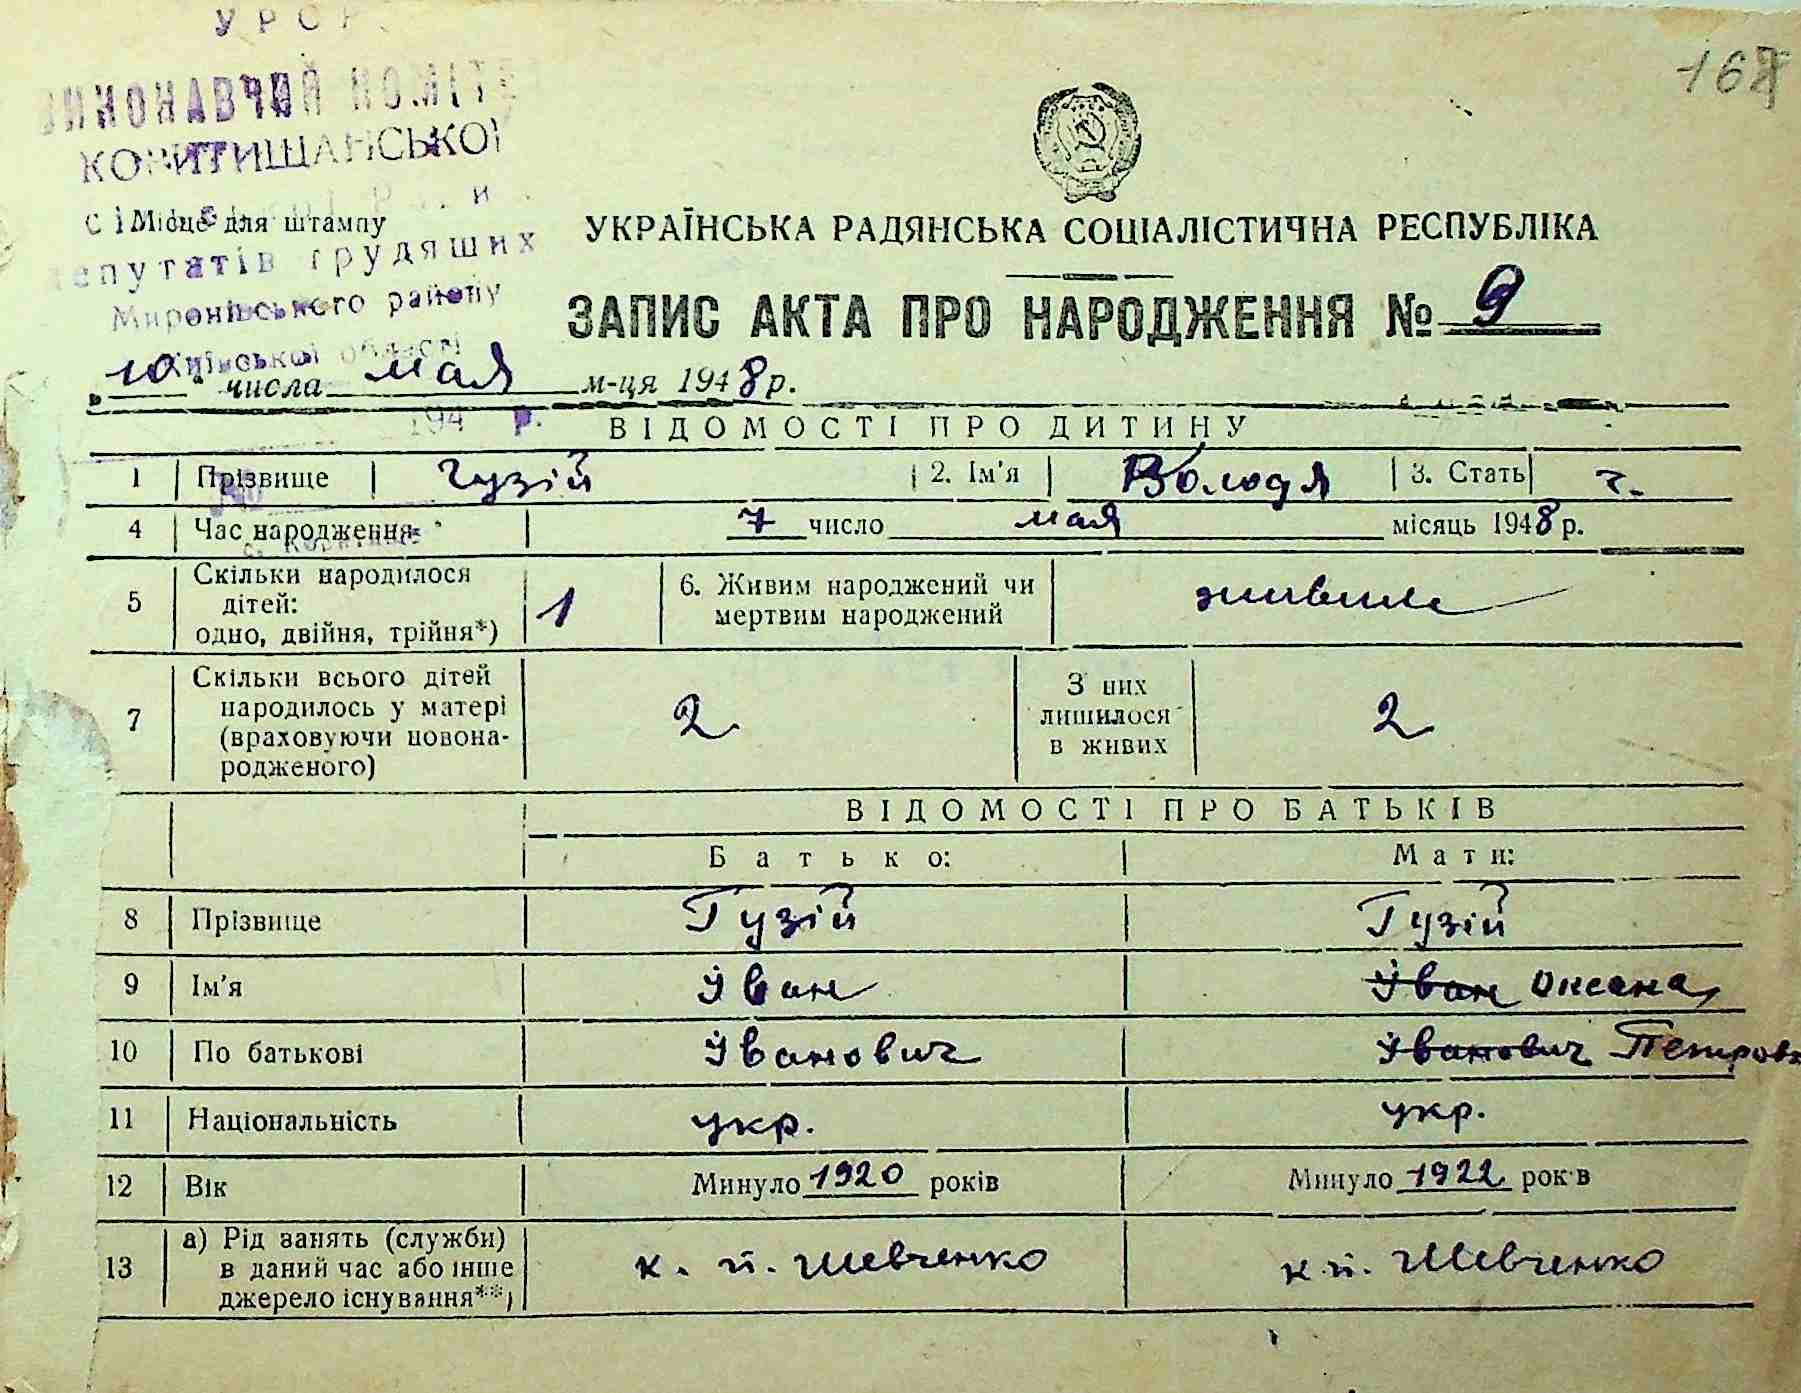 УРСР
ВИКОНАВЧИЙ КОМІТЕТ
КОРИТИЩАНСЬКОЇ
Місце для штампу
депутатів трудящих
Миронівського району
Київської області
194 р.
168
УКРАЇНСЬКА РАДЯНСЬКА СОЦІАЛІСТИЧНА РЕСПУБЛІКА
ЗАПИС АКТА ПРО НАРОДЖЕННЯ № 9
"10" числа мая м-ця 1948 р.
ВІДОМОСТІ ПРО ДИТИНУ
1 Прізвище Гузій 2. Ім'я Володя 3. Стать ч.
4 Час народження 7 число мая місяць 1948 р.
5 Скільки народилося дітей: одно, двійня, трійня*) 1 6. Живим народжений чи мертвим народжений живим
7 Скільки всього дітей народилось у матері (враховуючи новонародженого) 2 З них лишилося в живих 2
ВІДОМОСТІ ПРО БАТЬКІВ
Батько: Мати:
8 Прізвище Гузій Гузій
9 Ім'я Іван Іван Оксана
10 По батькові Іванович Іванович Петровн
11 Національність укр. укр.
12 Вік Минуло 1920 років Минуло 1922 років
13 а) Рід занять (служби) в даний час або інше джерело існування**) к. ім. Шевченко к. ім. Шевченко